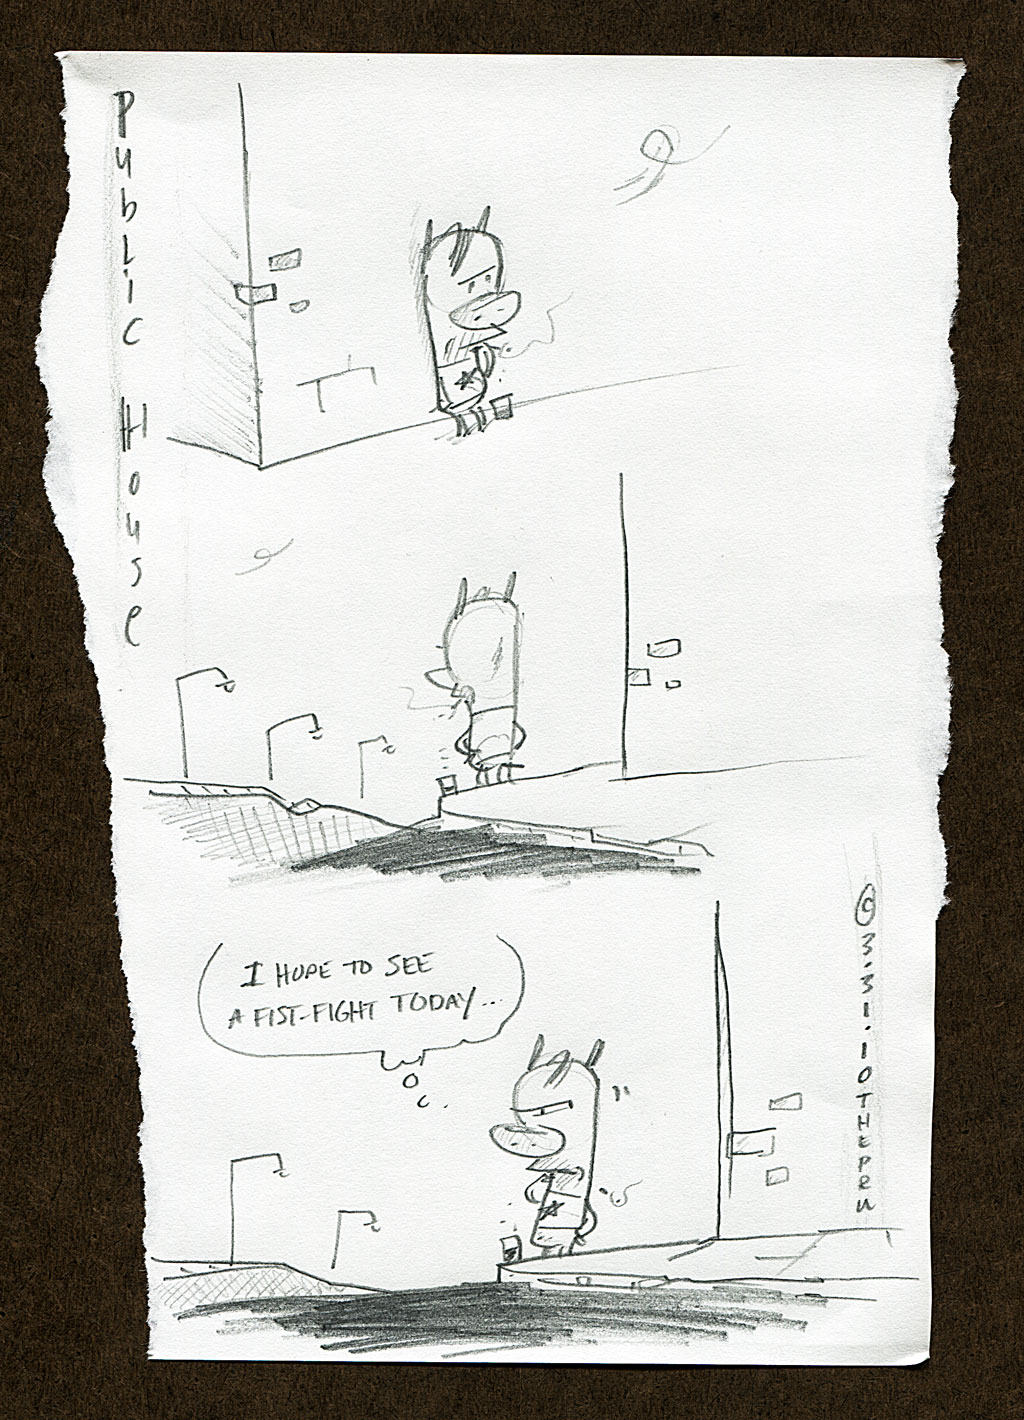 Public House
I HOPE TO SEE
A FIST-FIGHT TODAY...
© 3.31.10 THEPEN